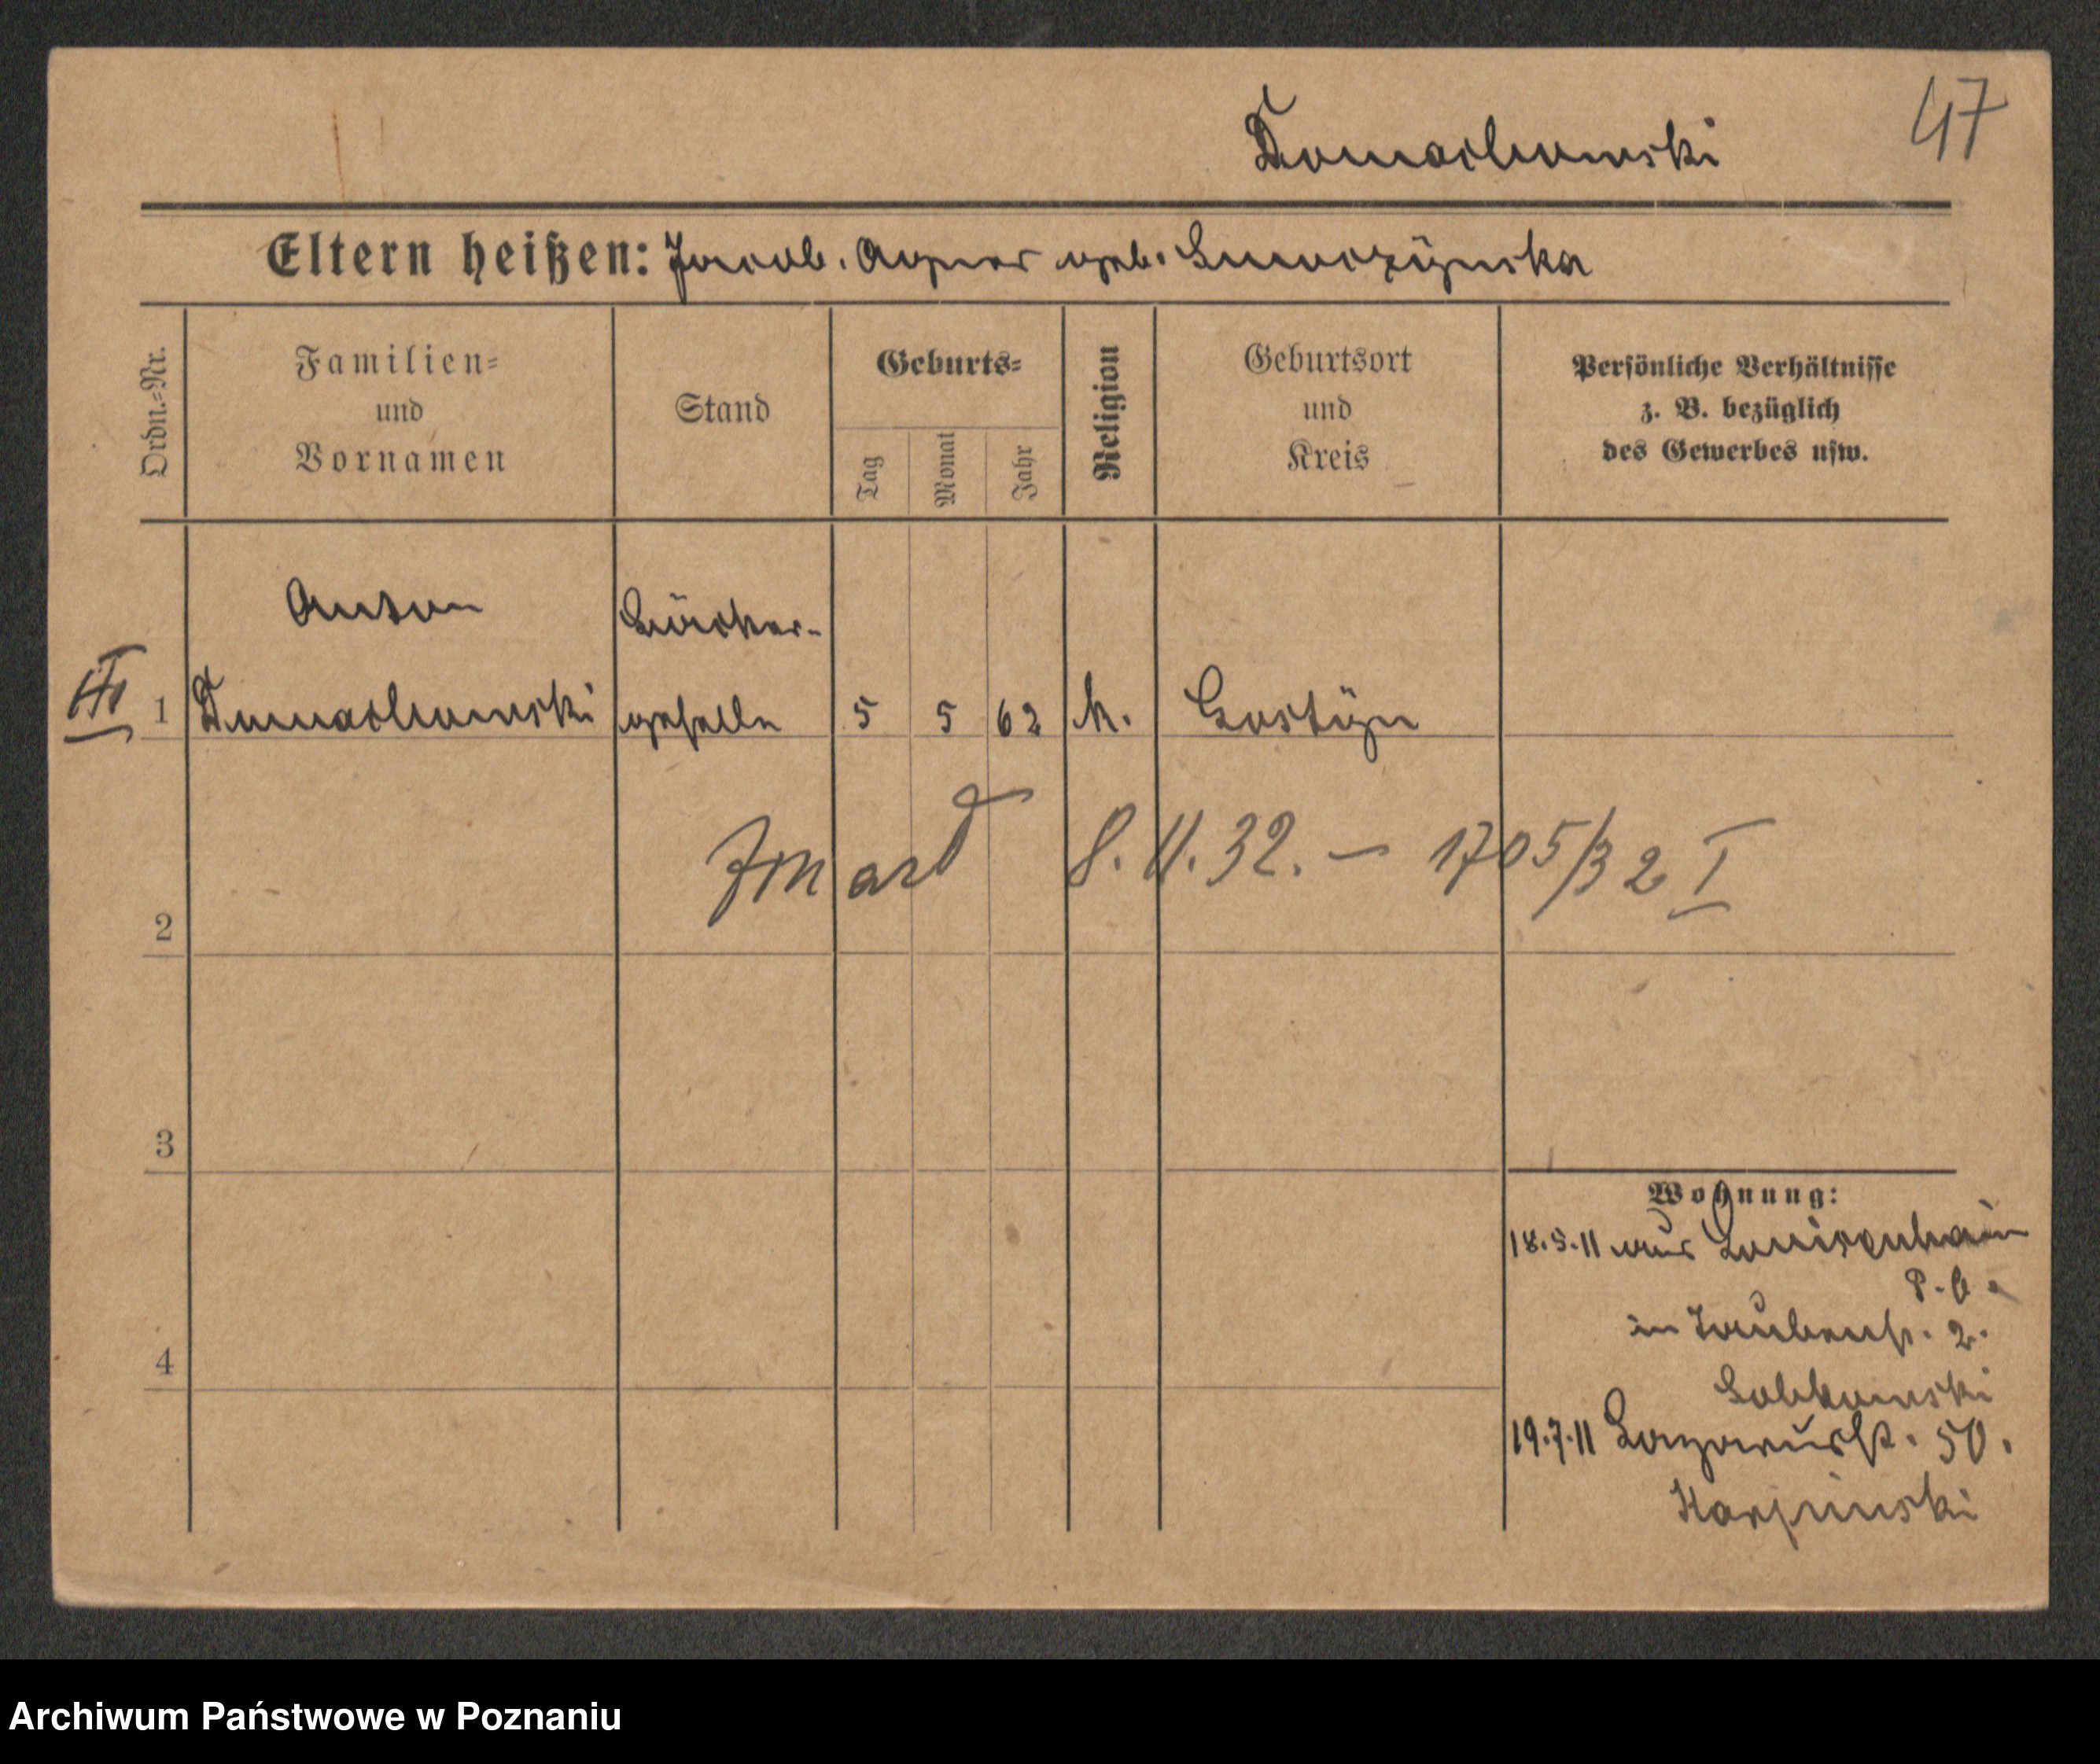 47
Domachowski
Eltern heißen: Jacob. Agnes geb.
Ordn.=Nr.
Familien=
und
Vornamen
Stand
Geburts=
Tag
Monat
Jahr
Religion
Geburtsort
und
Kreis
Persönliche Verhältnisse
z. B. bezüglich
des Gewerbes usw.
Anton
Bäcker-
III 1 Domachowski geselle 5 5 62 k. Gostÿn
Zmarł 8.11.32. — 1705/32 I
2
3
Wohnung:
18.5.11 aus Louisenhain
P. O.
in Taubenstr. 2.
4
19.7.11 Lazarusstr. 50.
Karpinski
Archiwum Państwowe w Poznaniu